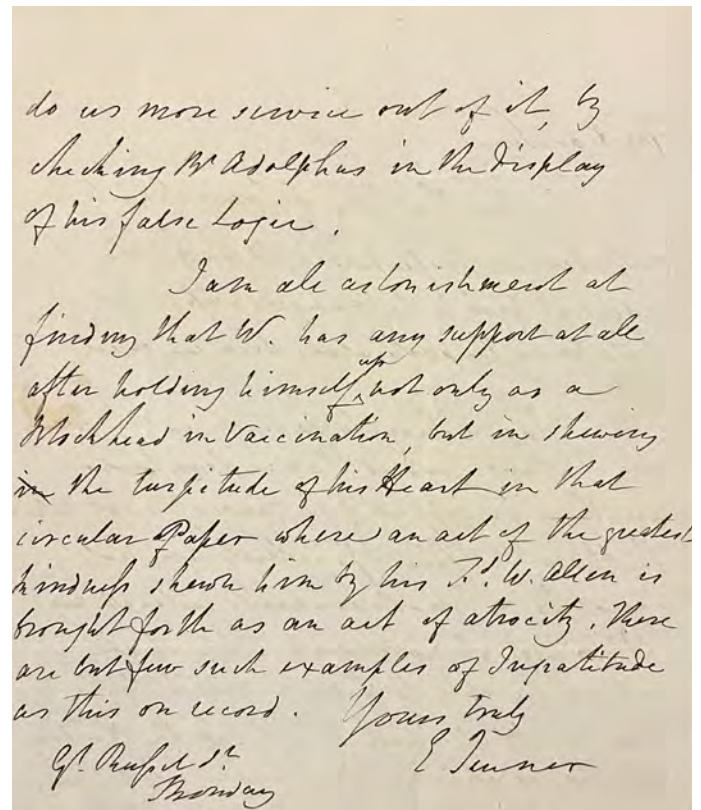 do us more service out of it, by
checking Dr Adolphus in the display
of his false Logic.
I am all astonishment at
finding that W. has any support at all
after holding himself up not only as a
Blockhead in Vaccination, but in shewing
in the turpitude of his Heart in that
circular Paper where an act of the greatest
kindness shewn him by his Fd. W. Allen is
brought forth as an act of atrocity. There
are but few such examples of Ingratitude
as this on record. Yours truly
E Jenner
Gt. Russel St.
Monday